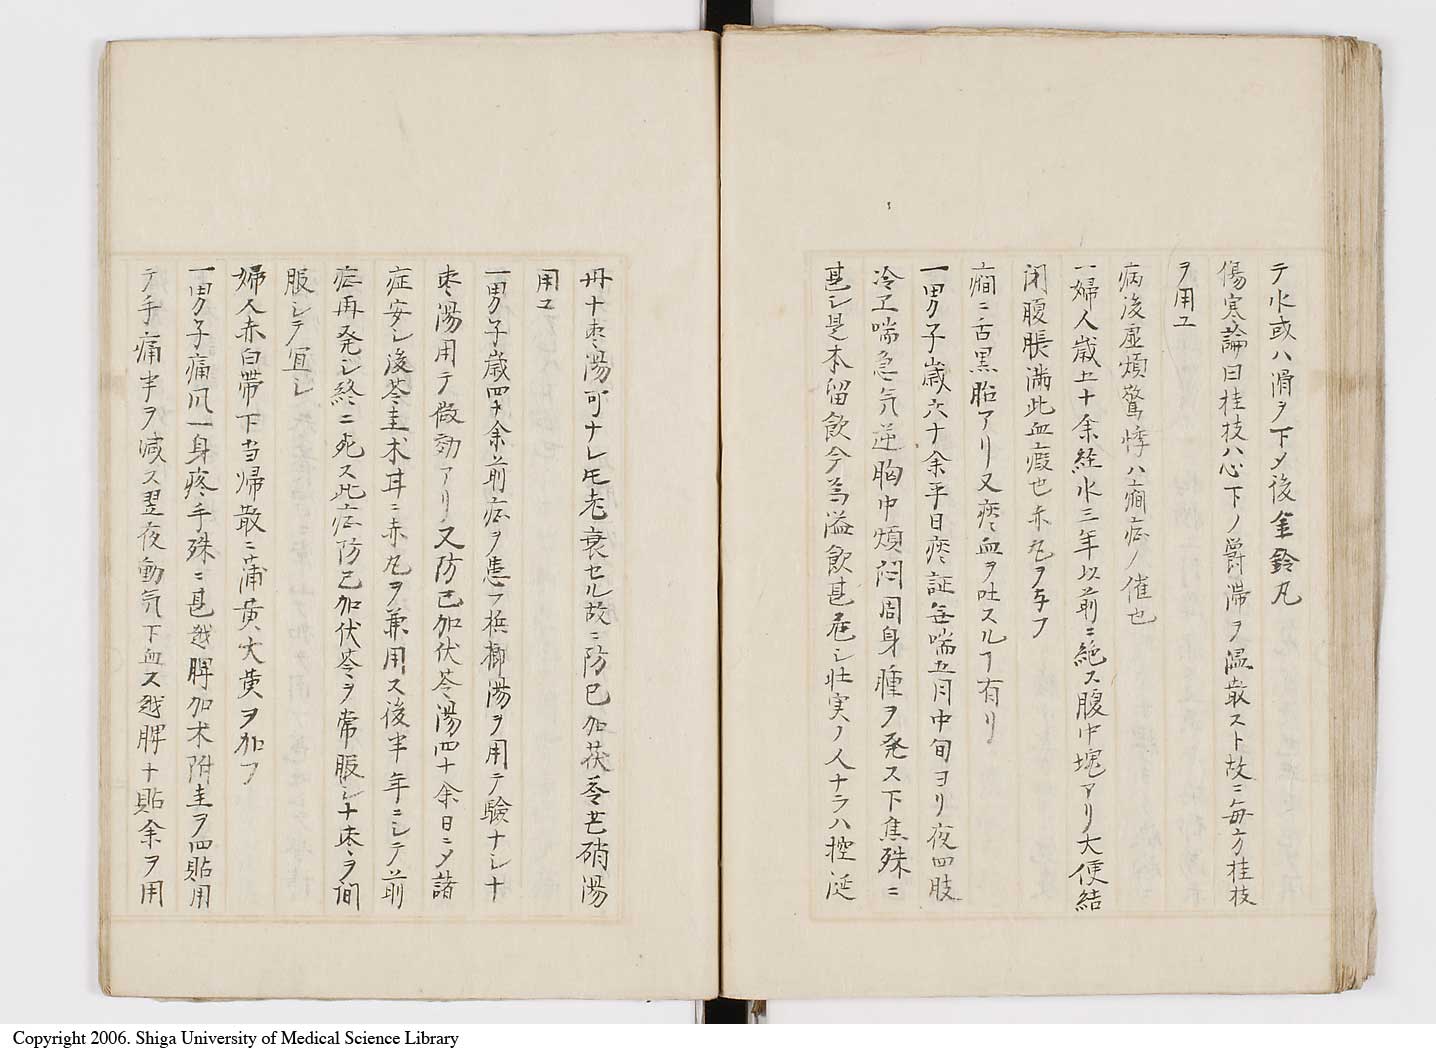 テ水或ハ滑ヲ下メ後金鈴丸
傷寒論曰桂枝ハ心下ノ爵滞ヲ温散スト故ニ毎方桂枝
ヲ用ユ
病後虚煩驚悸ハ癇症ノ催也
一婦人歳五十余経水三年以前ニ絶ス腹中塊アリ大便結
闭腹脹満此血瘕也赤丸ヲ与フ
癇ニ舌黒胎アリ又瘀血ヲ吐スルヿ有リ
一男子歳六十余平日痰証毎喘五月中旬ヨリ夜四肢
冷ヱ喘急気逆胸中煩闷周身腫ヲ発ス下焦殊ニ
甚シ是本留飲今為溢飲甚危シ壮実ノ人ナラハ控涎
丹十枣湯可ナレ𪜈老衰セル故ニ防已加茯苓芒硝湯
用ユ
一男子歳四十余前症ヲ患フ檳榔湯ヲ用テ験ナシ十
枣湯用テ微効アリ又防已加伏苓湯四十余日ニメ諸
症安シ後苓圭朮耳ニ赤丸ヲ兼用ス後半年ニシテ前
症再発シ終ニ死ス此症防已加伏苓ヲ常服シ十枣ヲ间
服シテ宜シ
婦人赤白帯下当帰散ニ蒲黄大黄ヲ加フ
一男子痛风一身疼手殊ニ甚越脾加朮附圭ヲ四貼用
テ手痛半ヲ減ス翌夜動気下血ス越脾十貼余ヲ用
Copyright 2006. Shiga University of Medical Science Library